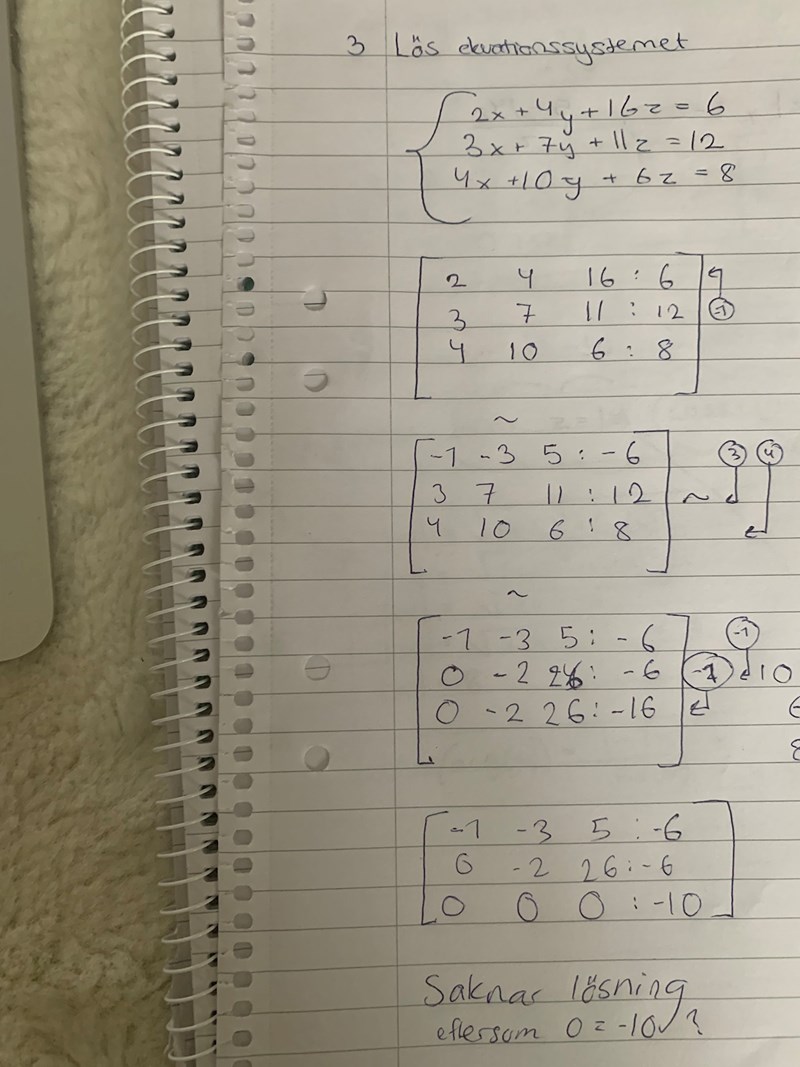 3 Lös ekvationssystemet
2x + 4y + 16z = 6
3x + 7y + 11z = 12
4x + 10y + 6z = 8
2 4 16 : 6
3 7 11 : 12 -1
4 10 6 : 8
~
-1 -3 5 : -6 3 4
3 7 11 : 12 ~
4 10 6 : 8
~
-1 -3 5 : -6 -1
0 -2 26 : -6 -1 10
0 -2 26 : -16
-1 -3 5 : -6
0 -2 26 : -6
0 0 0 : -10
Saknar lösning
eftersom 0 = -10 ?